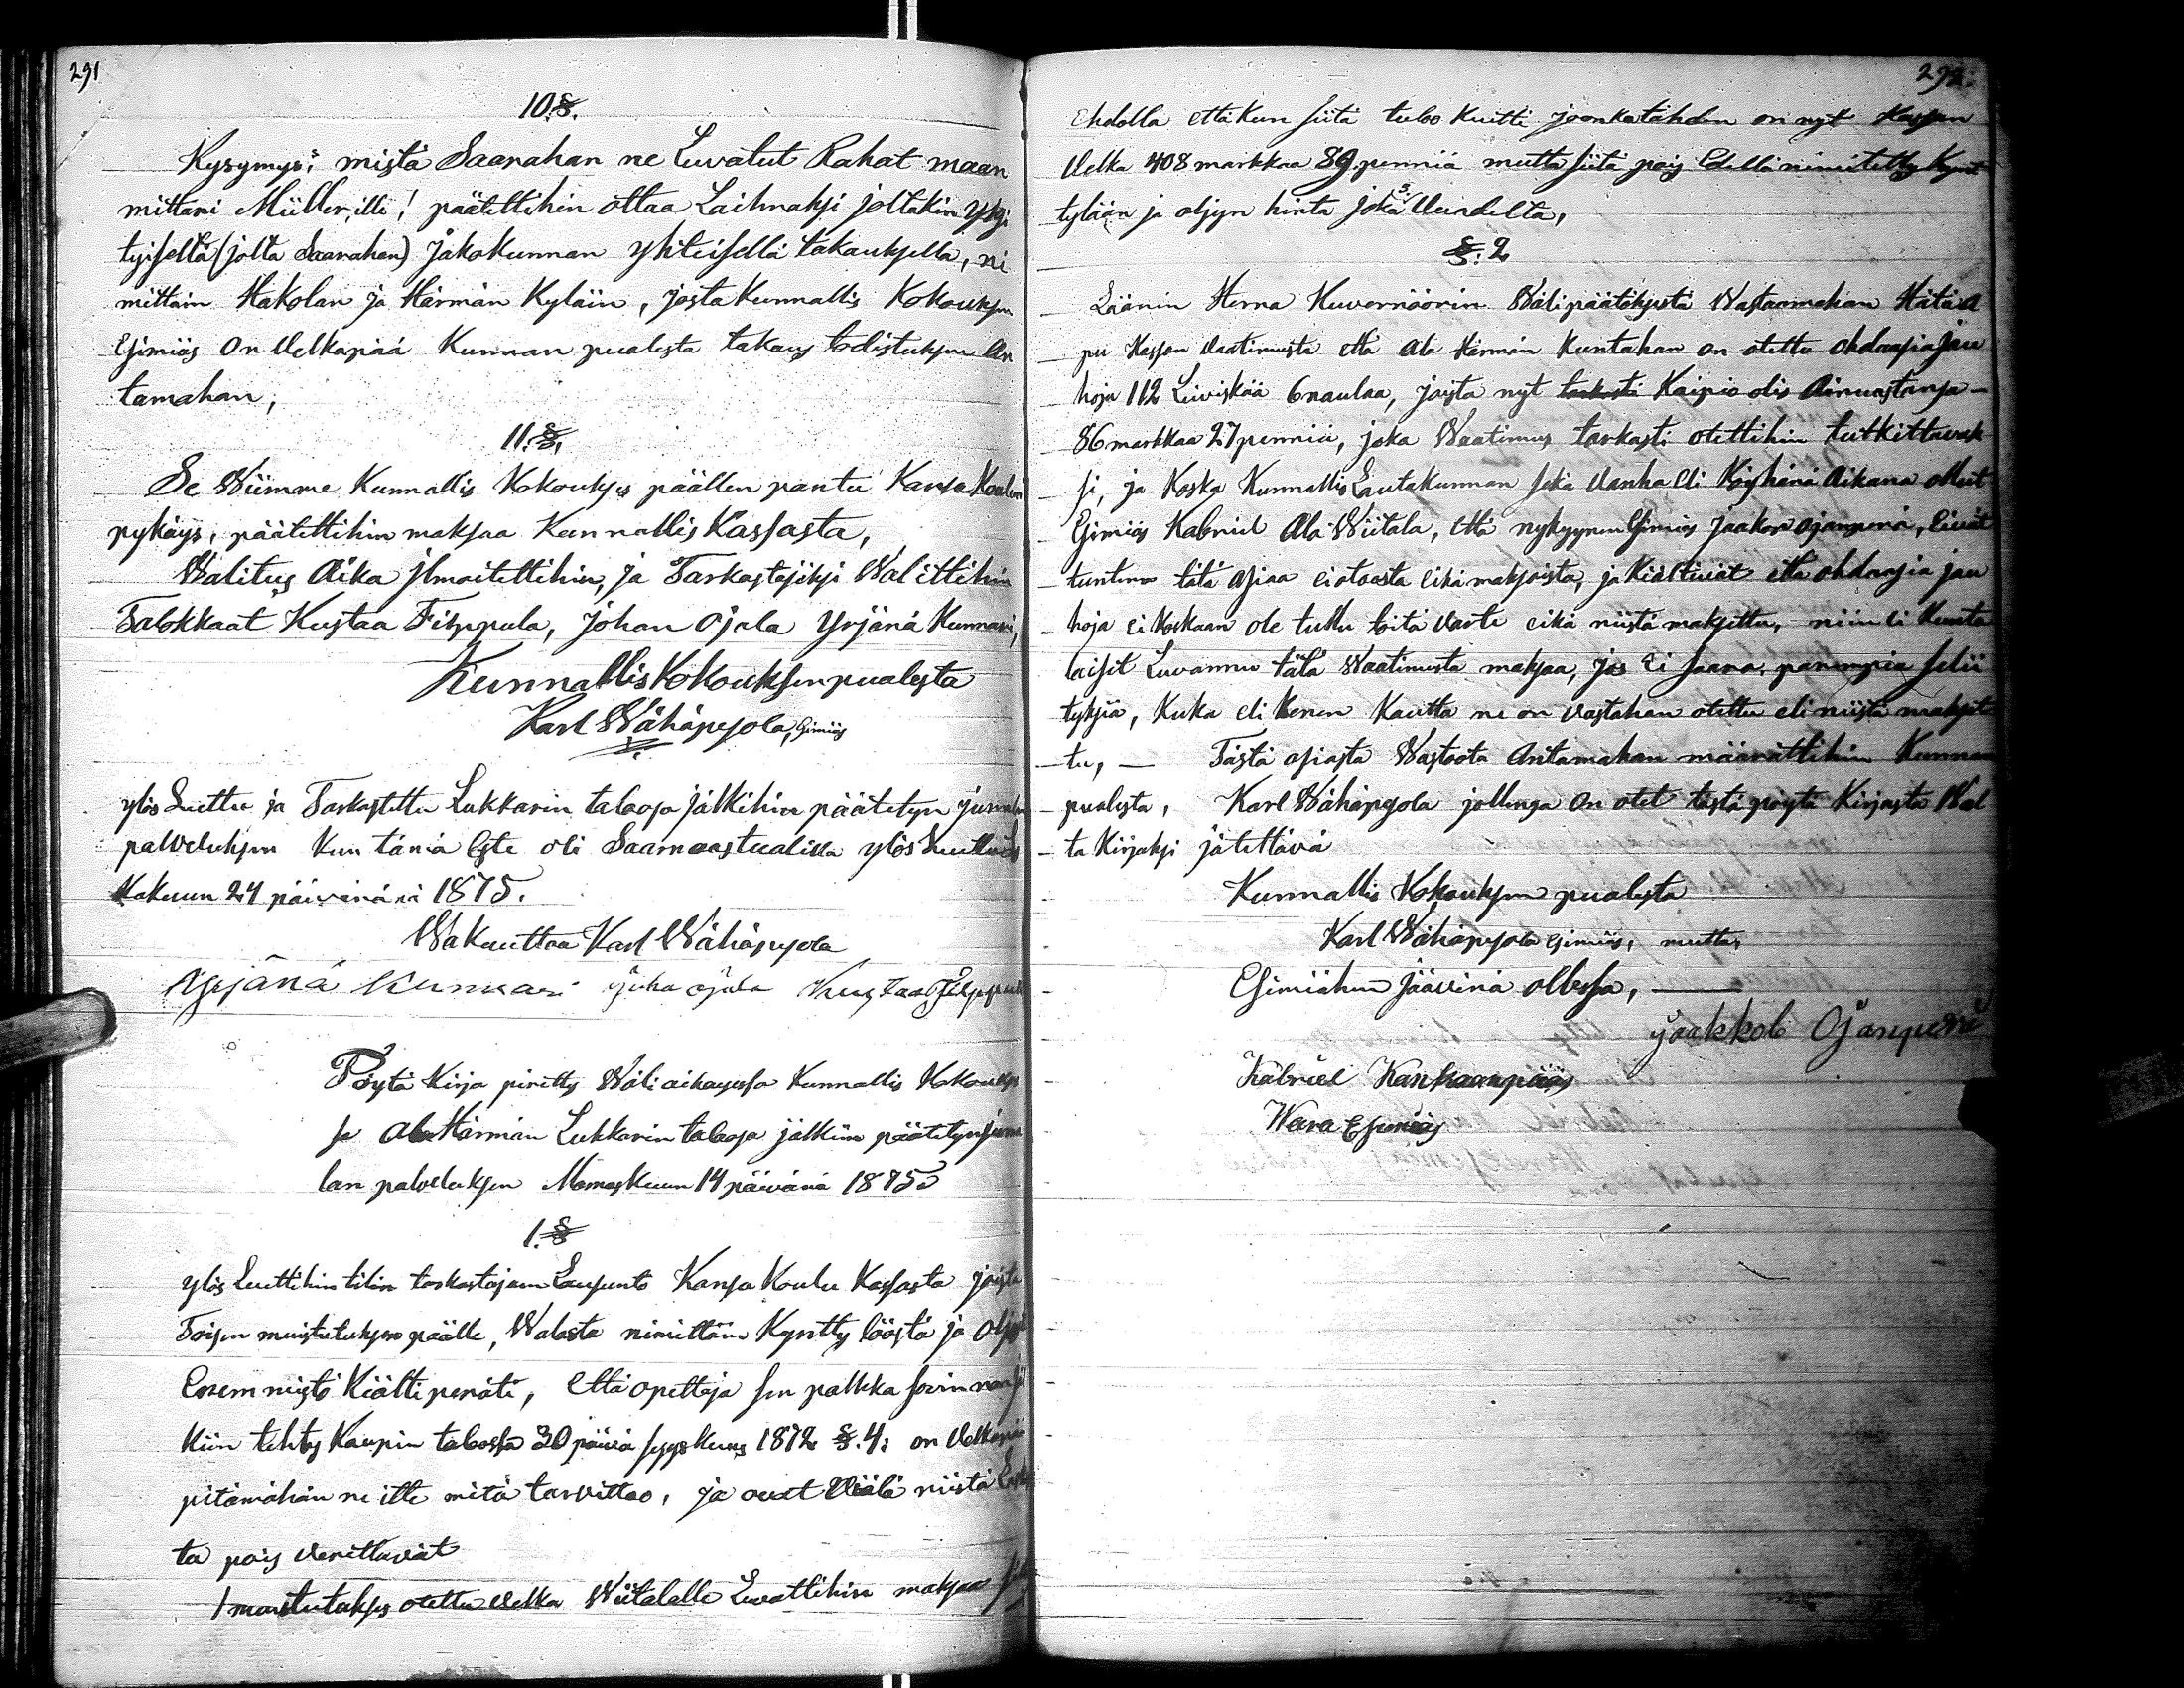 291
10.§.
Kysymys; mistä Saarahan ne Luvatut Rahat maan
mittari Müller,ille! päätettihin ottaa Lainaksi joltakin yksi
tyiseltä (jolta Saarahan) Jakokunnan yhteisellä takauksella, ni
mittäin Hakolan ja Härmän Kyläin, josta Kunnallis Kokouksen
Esimiäs on Velkapää Kunnan pualesta takaus todistuksen an
tamahan,
11.§.
Se Wiimme Kunnallis Kokoukses päällen pantu Kansa Koulun
pykäys, päätettihin maksaa Kunnallis Kassasta,
Walitus Aika jlmoitettihin, ja Tarkastajiksi Walittihin
Talokkaat Kustaa Filppula, Johan Ojala Yrjänä Kunnari,
Kunnallis Kokouksen pualesta
Karl Wähäpesola, Esimiäs
ylös Luettu ja Tarkastettu Lukkarin taloosa jälkihin päätetyn jumalan
palveluksen kun tämä Este oli Saarnastualilla ylös Luettu
kakuun 24 päivänä nä 1875.
Wakuuttaa Karl Wähäpesola
Yrjänä Kunnari Juha Ojala Kustaa Filppula
Pöytä Kirja piretty Wäliaikaisessa Kunnallis Kokoukse
sa Ala Härmän Lukkarin taloosa jälkiin päätetyn juma
lan palveluksen Marraskuun 14 päivänä 1875
1.§
ylös Luettihin tilin tarkastajain Lausunto Kansa Koulu Kassasta joista
Toisen muistutuksen päälle, Walosta nimittäin Kyntty löösta ja oljysta
Enemmistö Kiälti peräti, Että opettaja sen palkka sovinnon jäl
kiin tehty Kaupin taloossa 30 päivä syys kuus 1872 §.4: on Velkapää
pitämähän ne itte mitä tarvittoo, ja ovat Viälä niistä
ta pois Verittävät
1 muistutukses otettu Velka Wiitalalle Luvattihin maksaa
292:
Ehdolla että kun siitä tuloo Kuitti joonka tähden on nyt Kassan
Velka 408 markkaa 89 penniä mutta siitä pois Edellä nimitetty Kynt
tylään ja oljyn hinta joka 3. Vuodelta,
§.2
Läänin Herra Kuvernöörin Wälipäätöksestä Wastaamahan Hätä a
pu Kassan Vaatimusta että Ala Härmän Kuntahan on otettu ohdrasia jau
hoja 112 Leiviskää 6 naulaa, joista nyt tarkasti Kaipio olis Ainuastansa –
86 markkaa 27 penniä, joka Waatimus tarkasti otettihin tutkittavak
si, ja Koska Kunnallis Lautakunnan sekä Vanha Eli Köyhänä Aikana ollut
Esimiäs Kabriel Ala Wiitala, Että nykyynen Esimiäs Jaakoo Ojanperä, Eivät
tuntene tätä Asiaa ei otoosta eikä maksoista, ja Kiältivät että ohdrasia jau
hoja ei Koskaan ole tullu sitä Varte eikä niistä maksettu, niin ei Kunta
laiset Luvannu tätä Waatimusta maksaa, jos Ei saara parempia seli
tyksiä, Kuka eli Kenen Kautta ne on Vastahan otettu eli niistä makset
tu, — Tästä asiasta Wastoota Antamahan määrättihin Kunnan
pualesta, Karl Wähäpesola jollenga on otet tästä pöytä Kirjasta Wal
ta Kirjaksi jätettävä
Kunnallis Kokouksen pualesta
Karl Wähäpesola Esimiäs, mutta,
Esimiähen Jäävinä ollessa, —
Jaakkob Ojanperä
Kabriel Kankaanpää
Wara Esimiäs